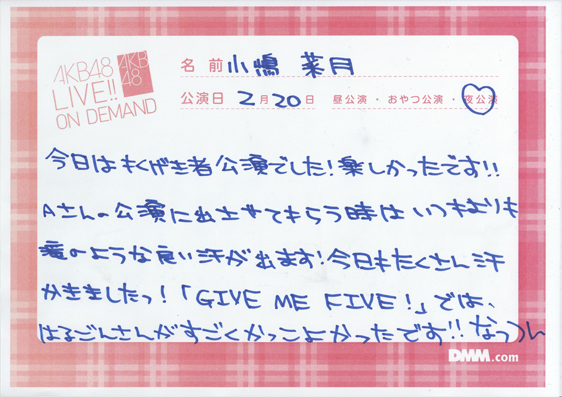 AKB48
LIVE!!
ON DEMAND
AKB
48
名前 小嶋 菜月
公演日 2月20日 昼公演・おやつ公演・夜公演
今日はもくげき者公演でした!楽しかったです!!
Aさんの公演に出させてもらう時はいつもよりも
滝のような良い汗が出ます!今日もたくさん汗
かきましたっ!「GIVE ME FIVE!」では、
はるごんさんがすごくかっこよかったです!! なっつん
DMM.com